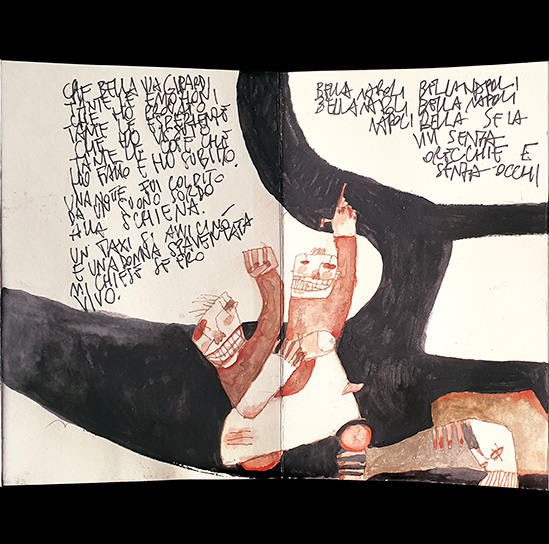 CHE BELLA VIA GIRARDI
TANTE LE EMOZIONI
CHE HO
TANTE LE ESPERIENZE
CHE HO VISSUTO
TANTE LE COSE CHE
HO E HO SUBITO.
UNA NOTTE FUI COLPITO
DA UN SUONO SORDO
ALLA SCHIENA.
UN TAXI SI AVVICINÒ
E UNA DONNA SPAVENTATA
MI CHIESE SE ERO
VIVO.
BELLA NAPOLI BELLA NAPOLI
BELLA NAPOLI BELLA NAPOLI
NAPOLI BELLA SE LA
VIVI SENZA
ORECCHIE E
SENZA OCCHI